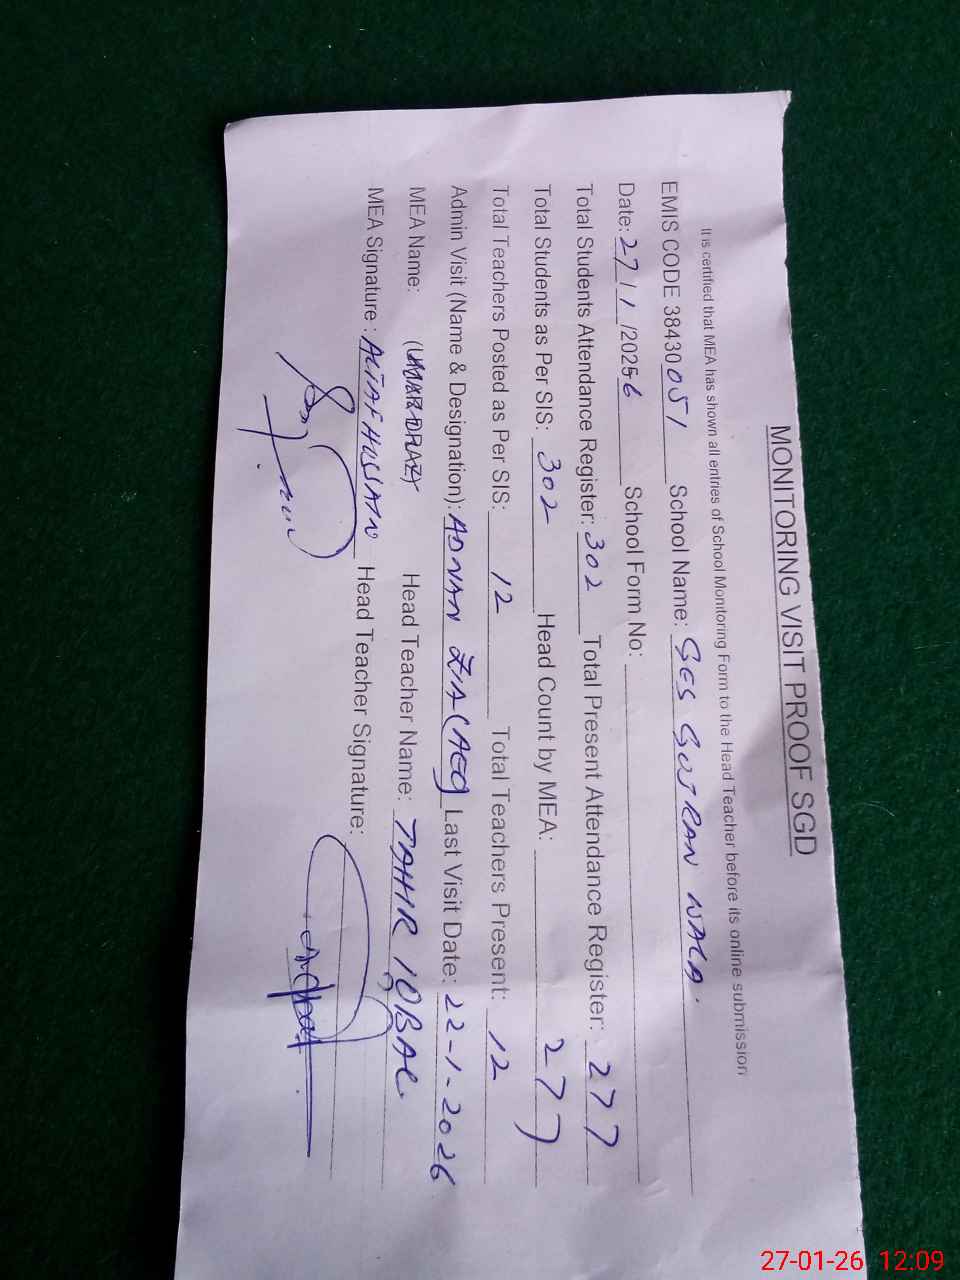 MONITORING VISIT PROOF SGD
It is certified that MEA has shown all entries of School Monitoring Form to the Head Teacher before its online submission
EMIS CODE 38430051 School Name: GES GUJRAN WALA.
Date: 27/1/20256 School Form No:
Total Students Attendance Register: 302 Total Present Attendance Register: 277
Total Students as Per SIS: 302 Head Count by MEA: 277
Total Teachers Posted as Per SIS: 12 Total Teachers Present: 12
Admin Visit (Name & Designation): ADNAN ZIA (AEO) Last Visit Date: 22-1-2026
MEA Name: Head Teacher Name: TAHIR IQBAL
MEA Signature: ALTAF HUSSAIN Head Teacher Signature:
27-01-26 12:09